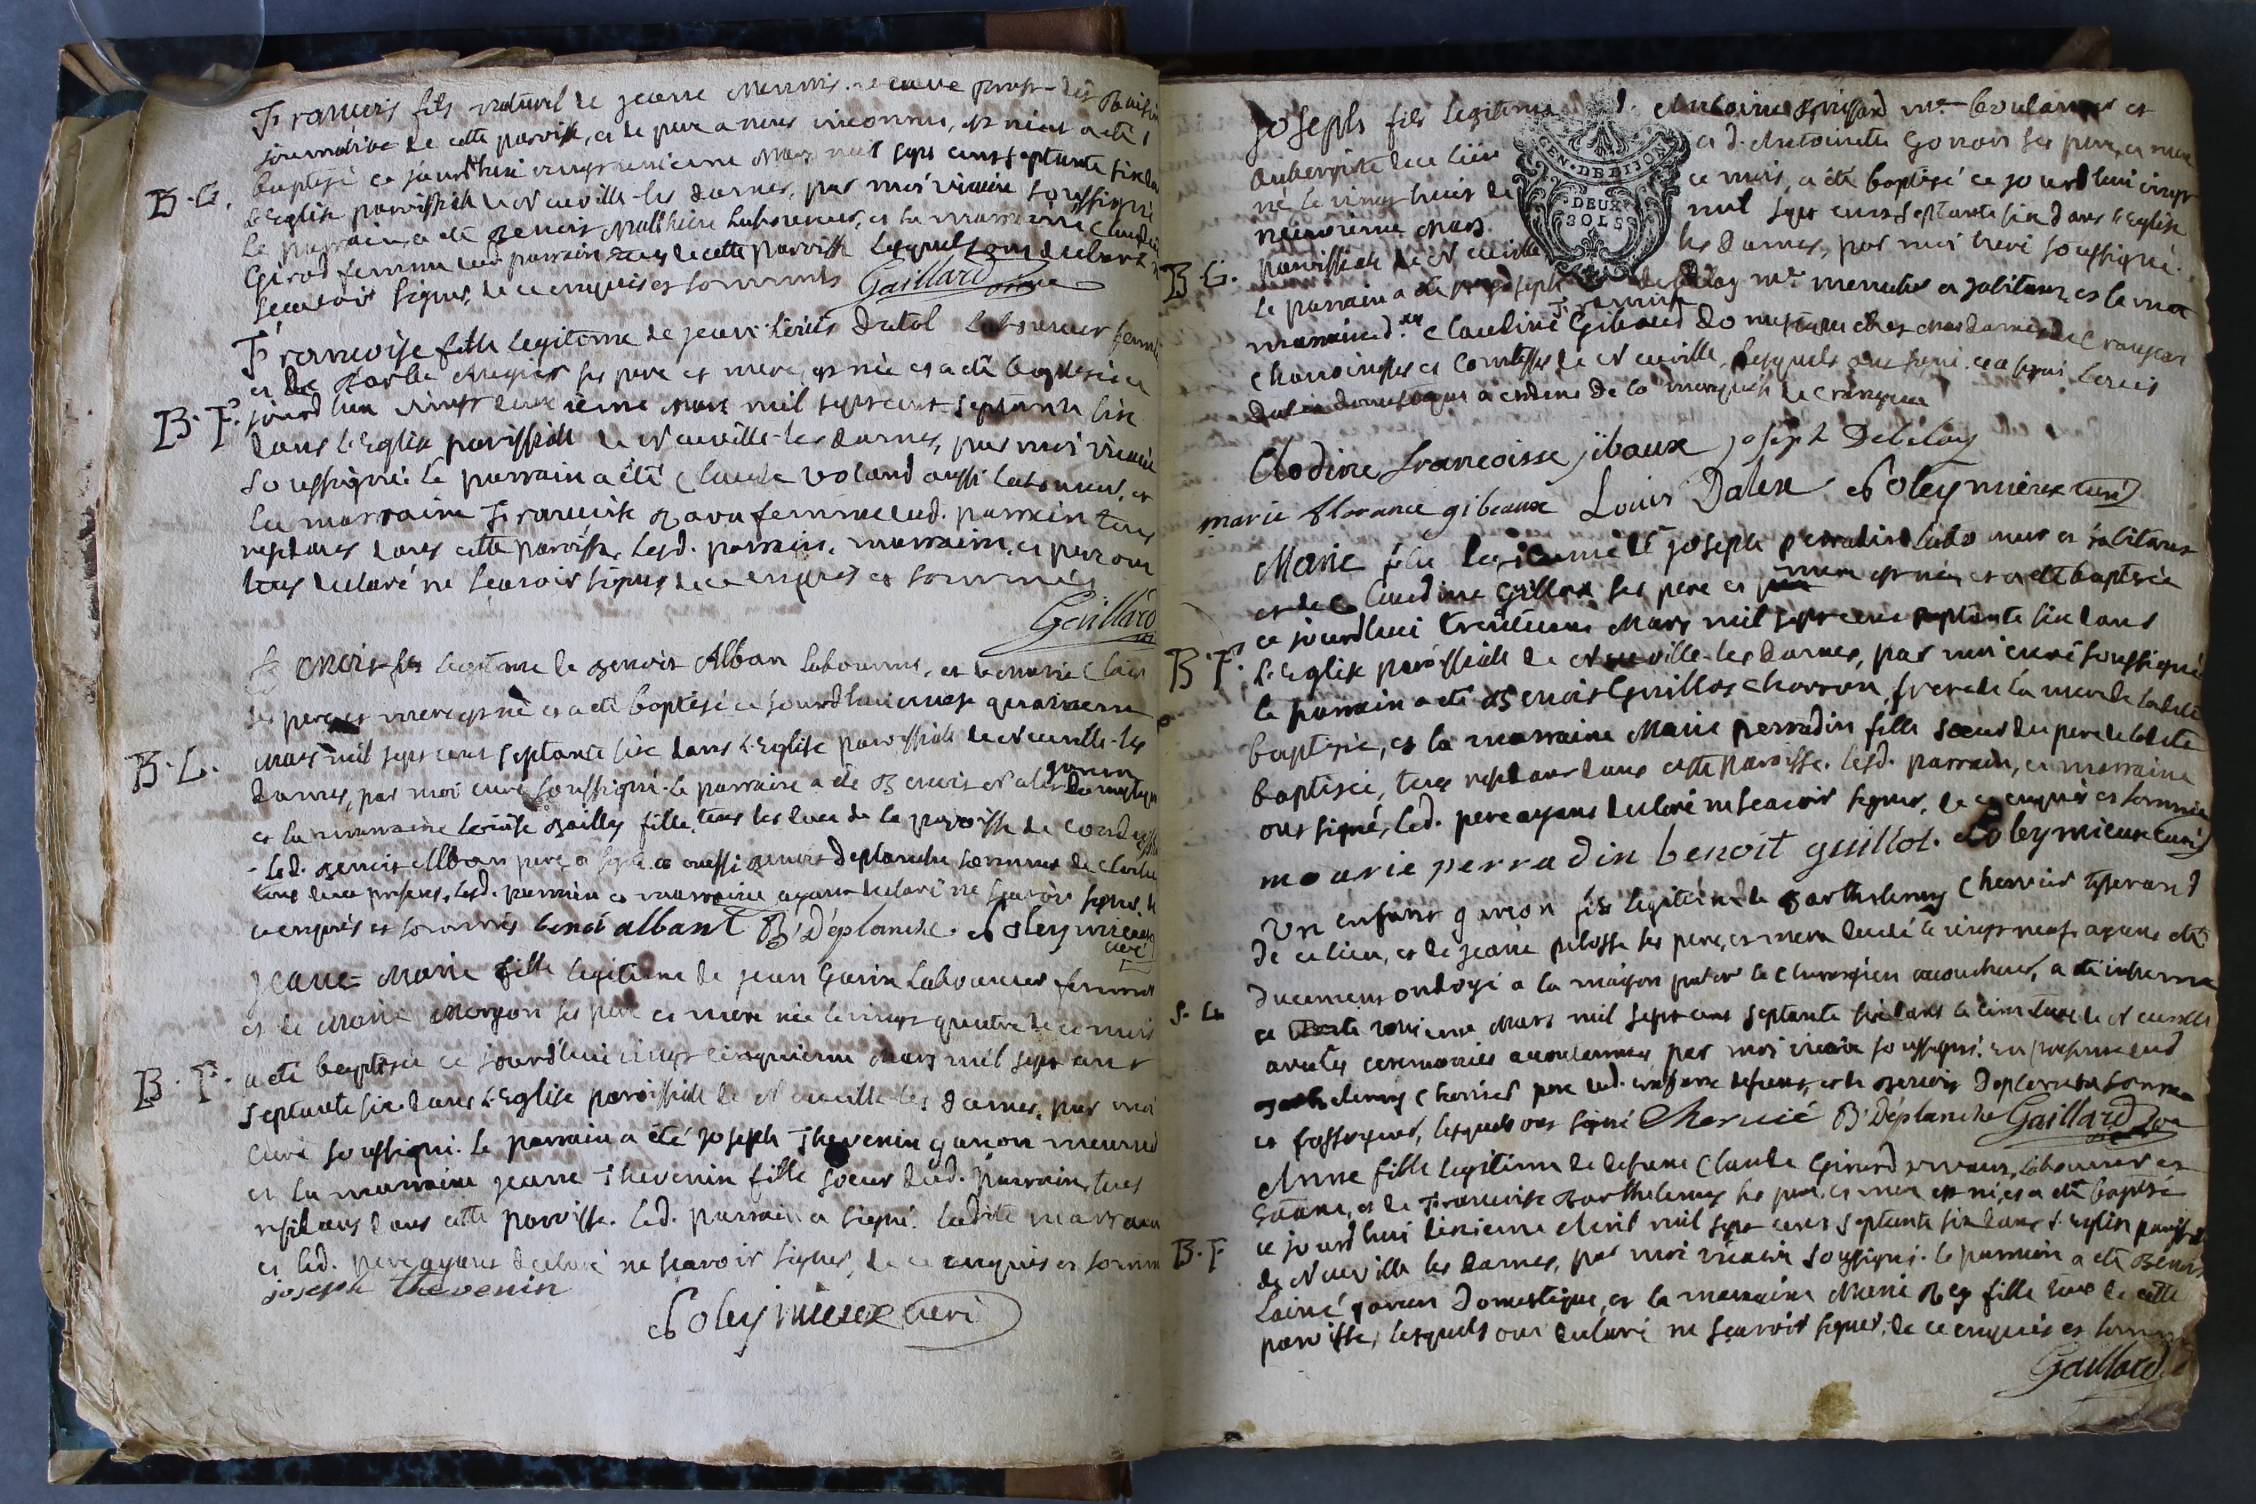 François fils naturel de jeanne
journaliere de cette paroisse, et de pere a nous inconnu, est né et a été
B. G. baptisé ce jourd'hui vingt unieme Mars mil sept cent septante six dans
l'Eglise paroissiale de Neuville-les dames, par moi vicaire soussigné
le parrain a été Benoit Matthieu laboureur, et la marraine Claudine
Girod femme dud. parrain tous de cette paroisse lesquels ont declaré ne
sçavoir signer, de ce enquis et sommés Gaillard vicaire
Françoise fille legitime de jean-Louis Dutal laboureur fermier
et de Marie ses pere et mere, est née et a été baptisée ce
B. F. jourd'hui vingt deuxieme Mars mil sept cent septante six
dans l'Eglise paroissiale de Neuville-les dames, par moi vicaire
soussigné. le parrain a été Claude Voland aussi laboureur, et
la marraine Françoise Bava femme dud. parrain tous
residants dans cette paroisse, lesd. parrain, marraine, et pere ont
tous declaré ne sçavoir signer, de ce enquis et sommés
Gaillard
Benoit fils legitime de Benoit Alban laboureur, et de Marie
ses pere et mere est né et a été baptisé ce jourd'hui vingt quatrieme
B. G. Mars mil sept cent septante six dans l'Eglise paroissiale de Neuville-les
dames, par moi curé soussigné. le parrain a été Benoit garçon domestique
et la marraine Louise Bailly fille, tous les deux de la paroisse de
led. Benoit Alban pere, a signé et aussi Benoit Deplanche sonneur de cloche
tous deux presents. lesd. parrain et marraine ayant declaré ne sçavoir signer, de
ce enquis et sommés benoi albant B. Déplanche. Soleymieux
curé
Jeanne-Marie fille legitime de jean Guerin laboureur fermier
et de Marie Morgon ses pere et mere née le vingt quatre de ce mois
B. F. a été baptisée ce jourd'hui vingt cinquieme Mars mil sept cent
septante six dans l'Eglise paroissiale de Neuville-les dames, par moi
curé soussigné. le parrain a été joseph Thevenin garçon
et la marraine jeanne Thevenin fille soeur dud. parrain, tous
residants dans cette paroisse. led. parrain a signé. ladite marraine
et led. pere ayant declaré ne sçavoir signer, de ce enquis et sommés
joseph thevenin
Soleymieux curé
Joseph fils legitime Antoine me boulanger et
aubergiste de ce lieu et d. Antoinette Gonon ses pere, et mere
né le vingt huit de ce mois, a été baptisé ce jourd'hui vingt
neuvieme Mars mil sept cent septante six dans l'Eglise
B. G. paroissiale de Neuville les dames, par moi curé soussigné.
GEN. DE DIJON
DEUX
SOLS
le parrain a été joseph Delelay me menuisier et habitant, et la
Françoise
marraine d. Claudine Gibaud domestique chez Mesdames de Crangeac
chanoinesses et Comtesses de Neuville, lesquels ont signé. et aussi Louis
domestique de la marquise de Crangeac
Clodine Francoisse jibaux joseph Delelay
marie florance gibeaux Louis Dalex Soleymieux curé
Marie fille legitime de joseph perradin laboureur et habitant
et de Claudine Guillot ses pere et mere est née et a été baptisée
ce jourd'hui trentieme Mars mil sept cent septante six dans
B. F. l'Eglise paroissiale de Neuville-les dames, par moi curé soussigné
le parrain a été Benoit Guillot charron, frere de la mere de ladite
baptisée, et la marraine Marie perradin fille soeur du pere de ladite
baptisée, tous residants dans cette paroisse. lesd. parrain, et marraine
ont signés, led. pere ayant declaré ne sçavoir signer, de ce enquis et sommé
marie perradin benoit guillot. Soleymieux curé
Un enfant garçon fils legitime de Barthelemy Chervier tisserand
de ce lieu, et de jeanne pelosse ses pere, et mere decedé le vingt neuf ayant été
duement ondoyé a la maison par le chirurgien accoucheur, a été inhumé
S. G. ce unieme Mars mil sept cent septante six dans le cimetiere de Neuville
avec les ceremonies accoutumées par moi vicaire soussigné. en presence dud
Barthelemy Chervier pere dud. enfant defunt, et de Benoit Deplanche sonneur
et fossoyeur, lesquels ont signé Chervié B. Déplanche Gaillard vicaire
Anne fille legitime de defunt Claude Girard vivant laboureur et
et de Françoise Barthelemy ses pere, et mere est née, et a été baptisée
ce jourd'hui dixieme Avril mil sept cent septante six dans l'Eglise paroissiale
B. F. de Neuville les dames, par moi vicaire soussigné. le parrain a été Benoit
Lainé garçon domestique, et la marraine Marie Rey fille tous de cette
paroisse, lesquels ont declaré ne sçavoir signer, de ce enquis et sommés
Gaillard